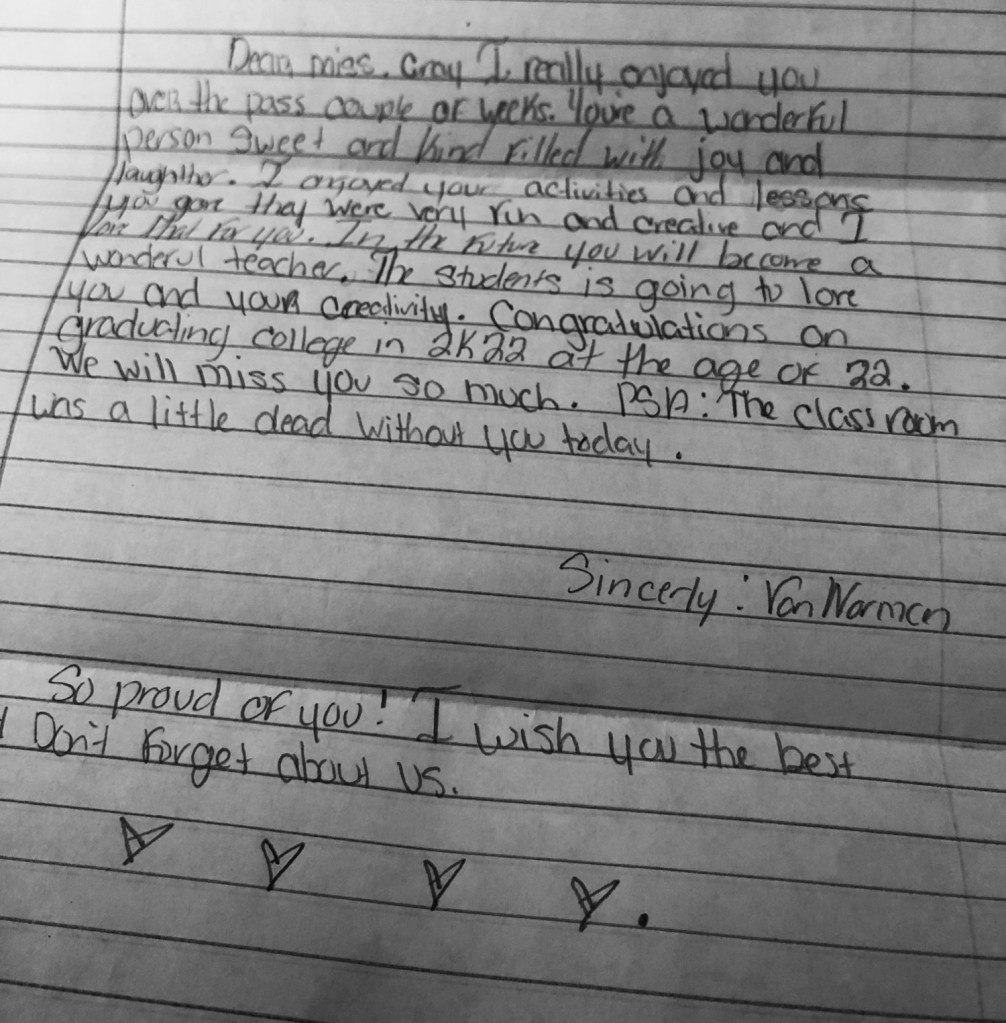 Dear, miss. Gray I really enjoyed you
over the pass couple of weeks. You're a wonderful
person Sweet and kind filled with joy and
laughther. I enjoyed your activities and lessons
you gave they were very fun and creative and I
love that for you. In the future you will become a
wonderful teacher. The students is going to love
you and your creativity. Congratulations on
graduating college in 2K22 at the age of 22.
We will miss you so much. PSA: The classroom
was a little dead without you today.
Sincerly: Van Warmen
So proud of you! I wish you the best
! Don't Forget about us.